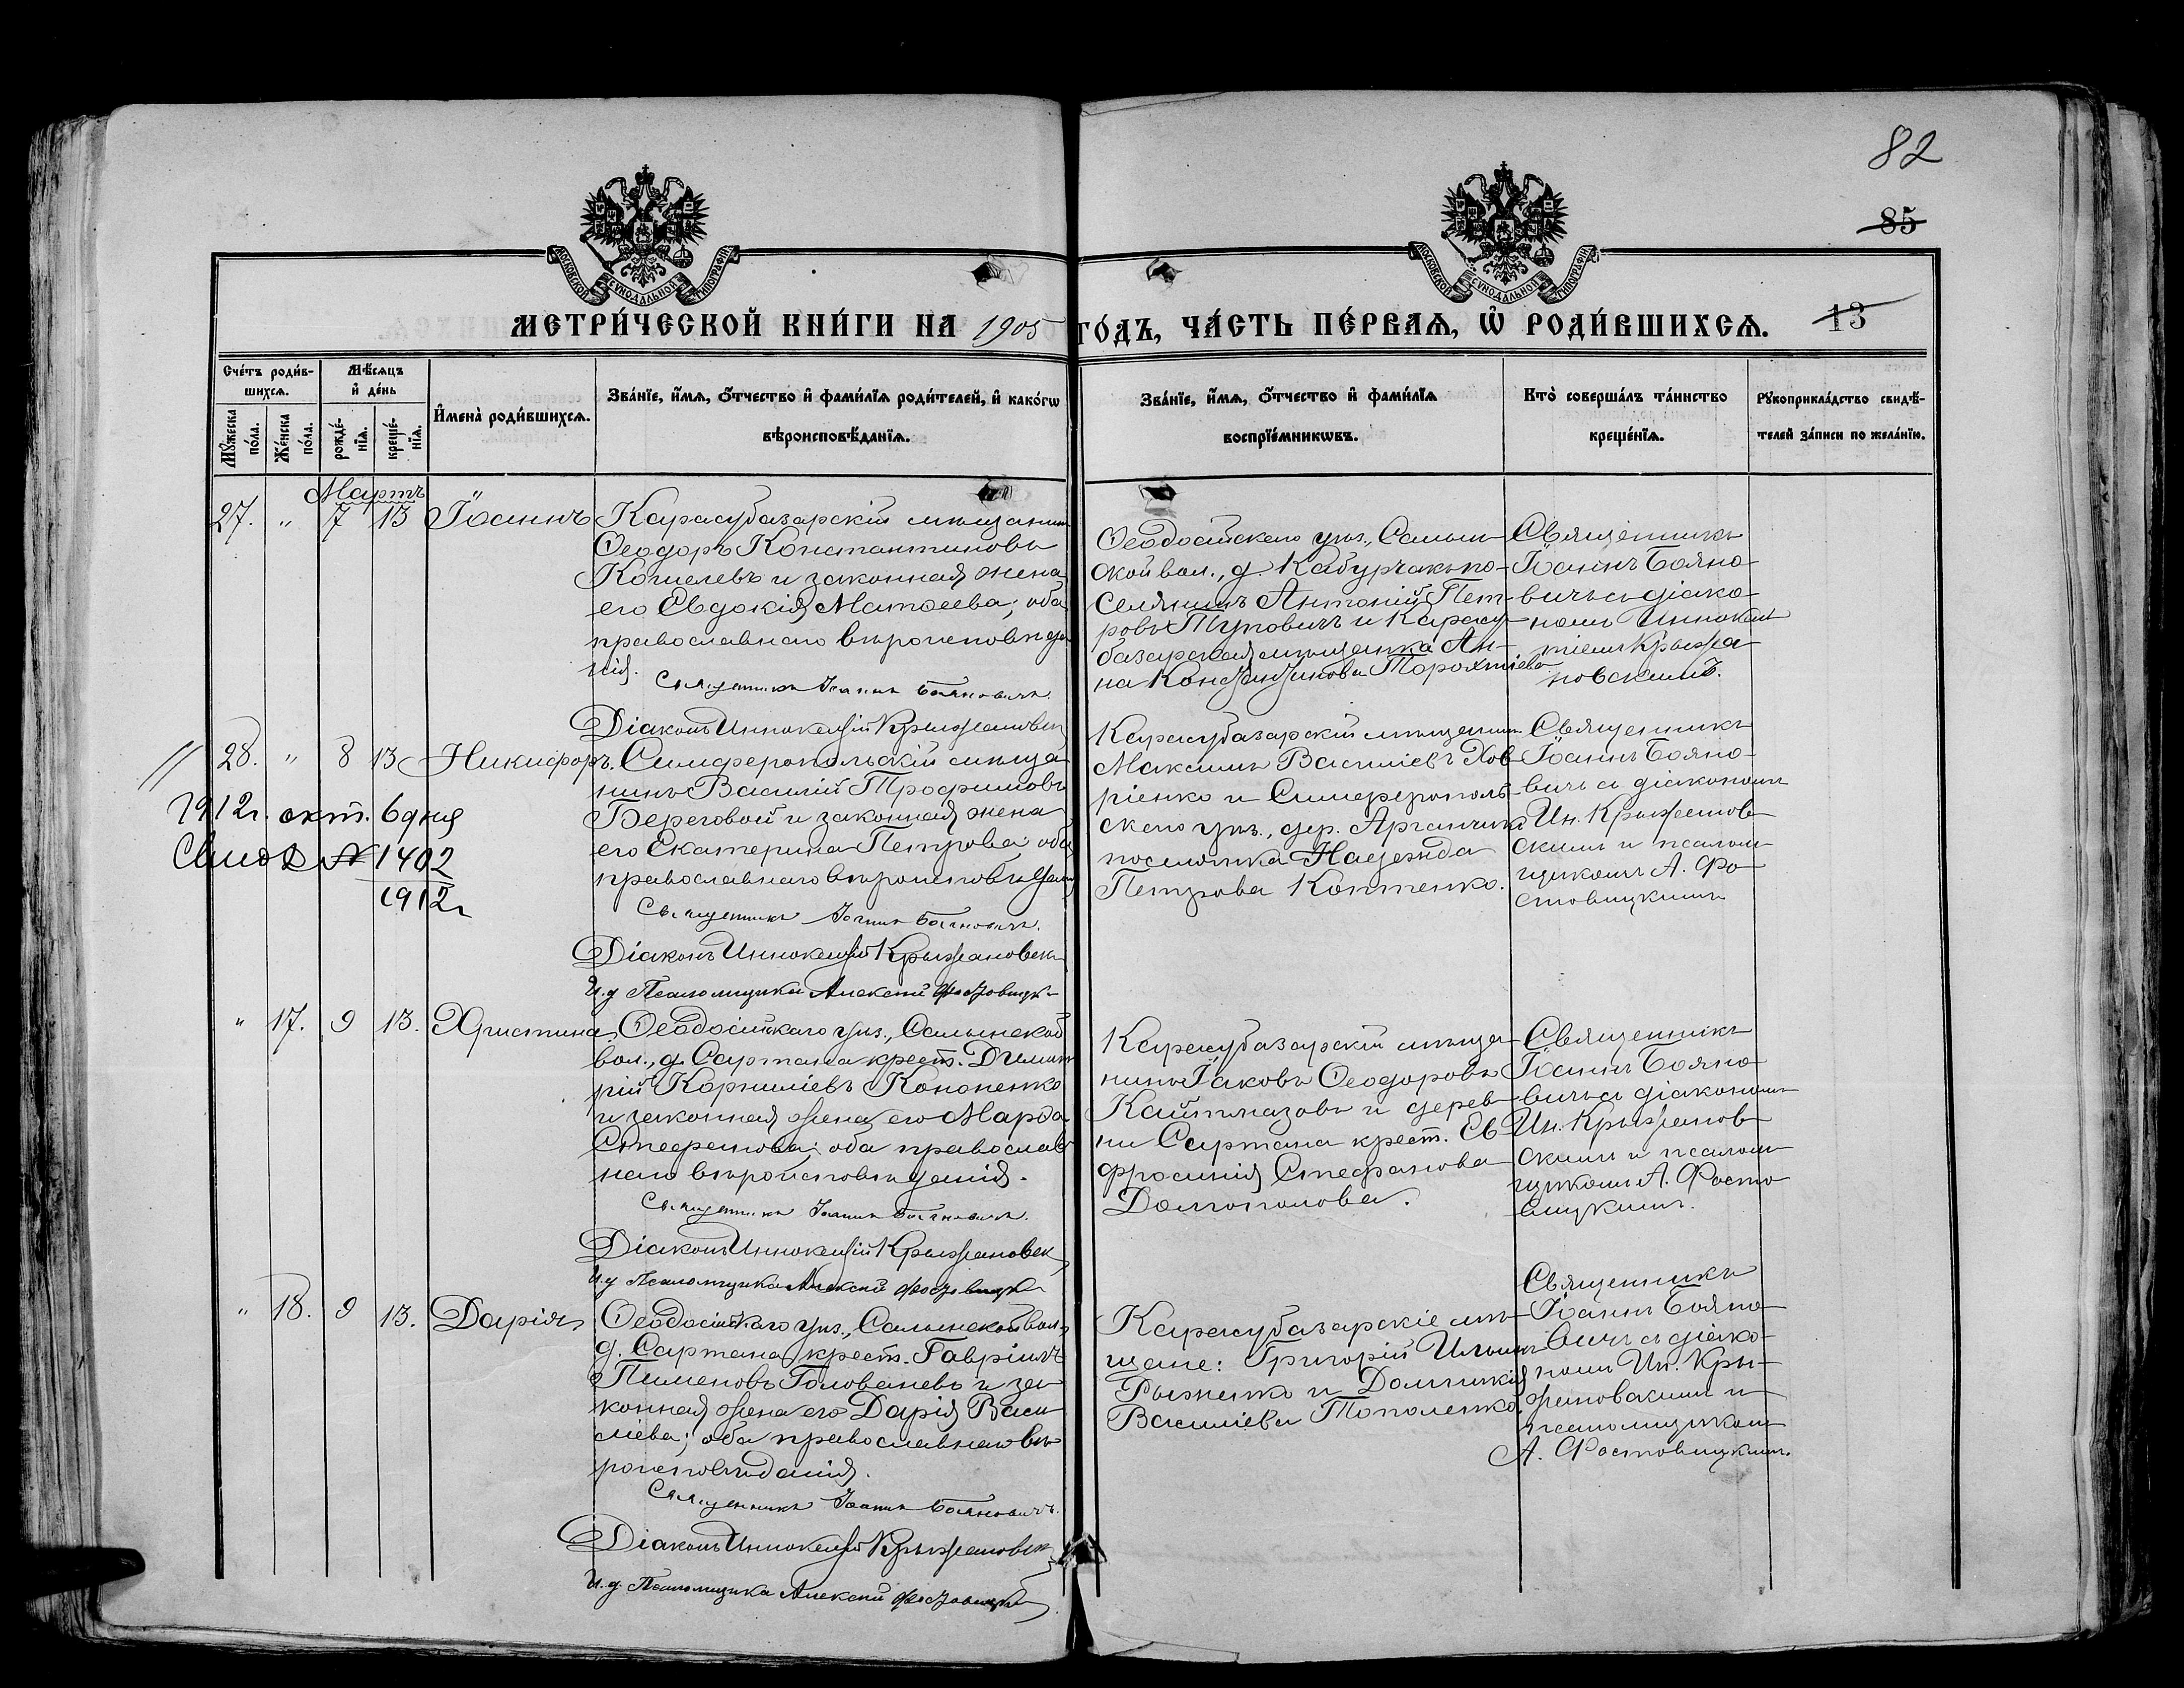 82
85
МОСКОВСКОЙ СѴНОДАЛЬНОЙ ТИПОГРАФІИ
МОСКОВСКОЙ СѴНОДАЛЬНОЙ ТИПОГРАФІИ
МЕТРИ́ЧЕСКОЙ КНИ́ГИ НА 1905 ГО́ДЪ, ЧА́СТЬ ПЕ́РВАѦ, Ѡ РОДИ́ВШИХСѦ.
13
Сче́тъ роди́в-
шихсѧ.
Мꙋ́жеска по́ла.
Же́нска по́ла.
Мѣ́сѧцъ
и҆ де́нь
рожде́-
нїѧ.
креще́-
нїѧ.
И҆мена̀ роди́вшихсѧ.
Зва́нїе, и҆́мѧ, ѻ҆́тчество и҆ фами́лїѧ роди́телей, и҆ како́гѡ
вѣроисповѣ́данїѧ.
Зва́нїе, и҆́мѧ, ѻ҆́тчество и҆ фами́лїѧ
воспрїе́мникѡвъ.
Кто̀ соверша́лъ та́инство
креще́нїѧ.
Рꙋкоприкла́дство свидѣ́-
телей за́писи по жела́нїю.
Мартъ
27. " 7 13 Іоаннъ
Карасубазарскій мѣщанинъ
Ѳеодоръ Константиновъ
Кошелевъ и законная жена
его Евдокія Матѳеева; оба
православнаго вѣроисповѣда
нія.
Священникъ Іоаннъ Бояновичъ.
Діаконъ Иннокентій Крыжановск
Ѳеодосійскаго уѣз., Салын-
ской вол., д. Кабурчакъ по-
селянинъ Антоній Пет-
ровъ Туповичъ и Карасу-
базарская мѣщанка Ан-
на Константинова
Священникъ
Іоаннъ Бояно-
вичъ съ діако-
номъ Иннокен
тіемъ Крыжа-
новскимъ.
// 28. " 8 13 Никифоръ.
1912г. окт. 6 дня
№ 1402
1912г
Симферопольскій мѣща
нинъ Василій Трофимовъ
Береговой и законная жена
его Екатерина Петрова оба
православнаго вѣроисповѣдан
Священникъ Іоаннъ Бояновичъ.
Діаконъ Иннокентій Крыжановск
И.д Псаломщика Алексій Фостовицк
Карасубазарскій мѣщанинъ
Максимъ Василіевъ Хов
ріенко и Симферополь-
скаго уѣз., дер. Арганчикъ
поселянка Надежда
Петрова Коппенко.
Священникъ
Іоаннъ Бояно-
вичъ съ діакономъ
Ин. Крыжанов
скимъ и псалом
щикомъ А. Фо
стовицкимъ
" 17. 9 13. Христина
Ѳеодосійскаго уѣз., Салынской
вол., д. Сартана крест. Димит
рій Корниліевъ Кононенко
и законная жена его Марѳа
Стефанова; оба православ
наго вѣроисповѣданія.
Священникъ Іоаннъ Бояновичъ.
Діаконъ Иннокентій Крыжановск
И.д Псаломщика Алексій Фостовицк
Карасубазарскій мѣща-
нинъ Іаковъ Ѳеодоровъ
Каймназовъ и дерев-
ни Сартана крест. Ев
фросинія Стефанова
Долгополова.
Священникъ
Іоаннъ Бояно
вичъ съ діакономъ
Ин. Крыжанов
скимъ и псалом
щикомъ А. Фосто
вицкимъ.
" 18. 9 13. Дарія
Ѳеодосійскаго уѣз., Салынской вол.,
д. Сартана крест. Гавріилъ
Пименовъ Голованевъ и за
конная жена его Дарія Васи
ліева; оба православнаго вѣ
роисповѣданія.
Священникъ Іоаннъ Бояновичъ.
Діаконъ Иннокентій Крыжановск
И.д. Псаломщика Алексій Фостовицк
Карасубазарскіе мѣ-
щане: Григорій Ильинъ
Рыженко и Домникія
Василіева Тополенко.
Священникъ
Іоаннъ Бояно
вичъ съ діако-
номъ Ин. Кры-
жановскимъ и
псаломщикомъ
А. Фостовицкимъ.